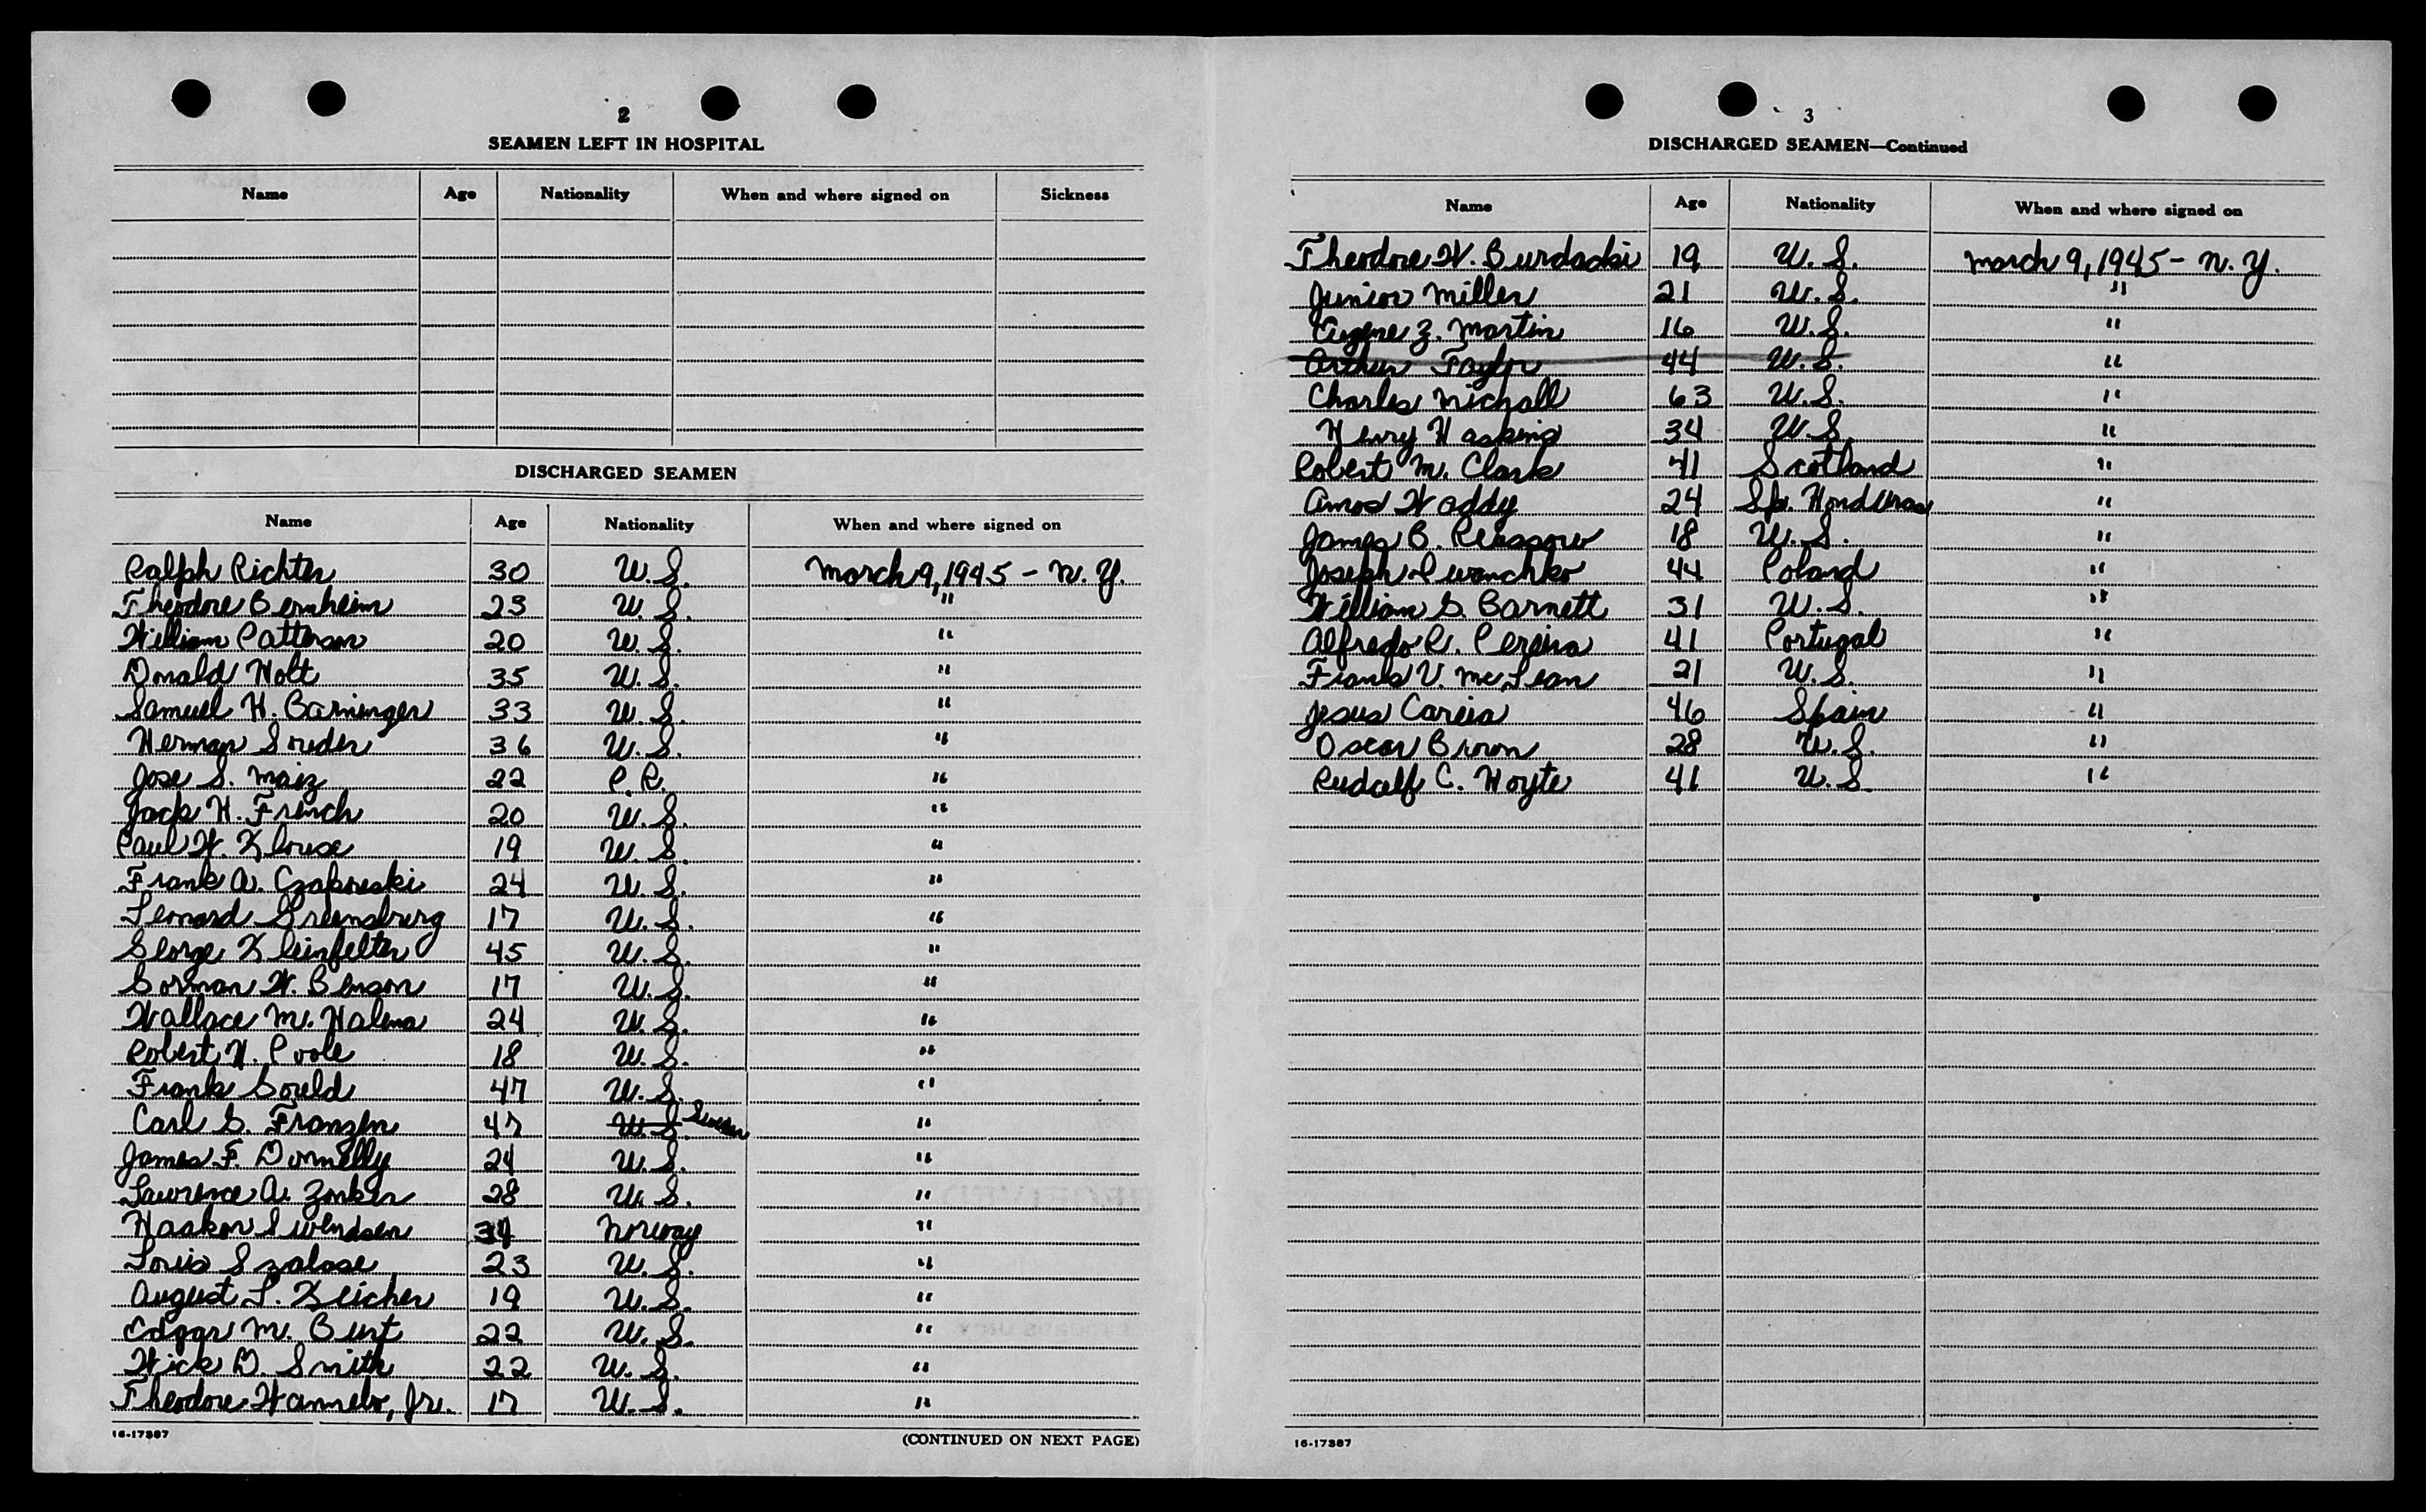 2
SEAMEN LEFT IN HOSPITAL
Name Age Nationality When and where signed on Sickness
DISCHARGED SEAMEN
Name Age Nationality When and where signed on
Ralph Richter 30 U.S. March 9, 1945 - N.Y.
Theodore Bernheim 23 U.S. "
William Patterson 20 U.S. "
Donald Holt 35 U.S. "
Samuel H. Barninger 33 U.S. "
Herman Souder 36 U.S. "
Jose S. Maiz 22 P.R. "
Jack H. French 20 U.S. "
Paul W. Klouse 19 U.S. "
Frank A. Czapreski 24 U.S. "
Leonard Greensberg 17 U.S. "
George Kleinfelter 45 U.S. "
Gorman W. Benson 17 U.S. "
Wallace M. Halena 24 U.S. "
Robert H. Poole 18 U.S. "
Frank Gould 47 U.S. "
Carl G. Franzen 47 U.S. Sweden "
James F. Donnelly 24 U.S. "
Lawrence A. Zonker 28 U.S. "
Haakon Swendsen 34 Norway "
Louis Szalase 23 U.S. "
August L. Keicher 19 U.S. "
Edgar M. Burt 22 U.S. "
Wick D. Smith 22 U.S. "
Theodore Wannebo, Jr. 17 U.S. "
16-17387 (CONTINUED ON NEXT PAGE)
3
DISCHARGED SEAMEN—Continued
Name Age Nationality When and where signed on
Theodore W. Burdacki 19 U.S. March 9, 1945 - N.Y.
Junior Miller 21 U.S. "
Eugene Z. Martin 16 U.S. "
Arthur Taylor 44 U.S. "
Charles Nichall 63 U.S. "
Henry Haskins 34 U.S. "
Robert M. Clark 41 Scotland "
Amos Waddy 24 Sp. Honduras "
James B. 18 U.S. "
Joseph Iwanchko 44 Poland "
William G. Barnett 31 U.S. "
Alfredo R. Pereira 41 Portugal "
Frank V. McLean 21 U.S. "
Jesus Careia 46 Spain "
Oscar Brown 28 U.S. "
Rudolf C. Hoyte 41 U.S. "
16-17387